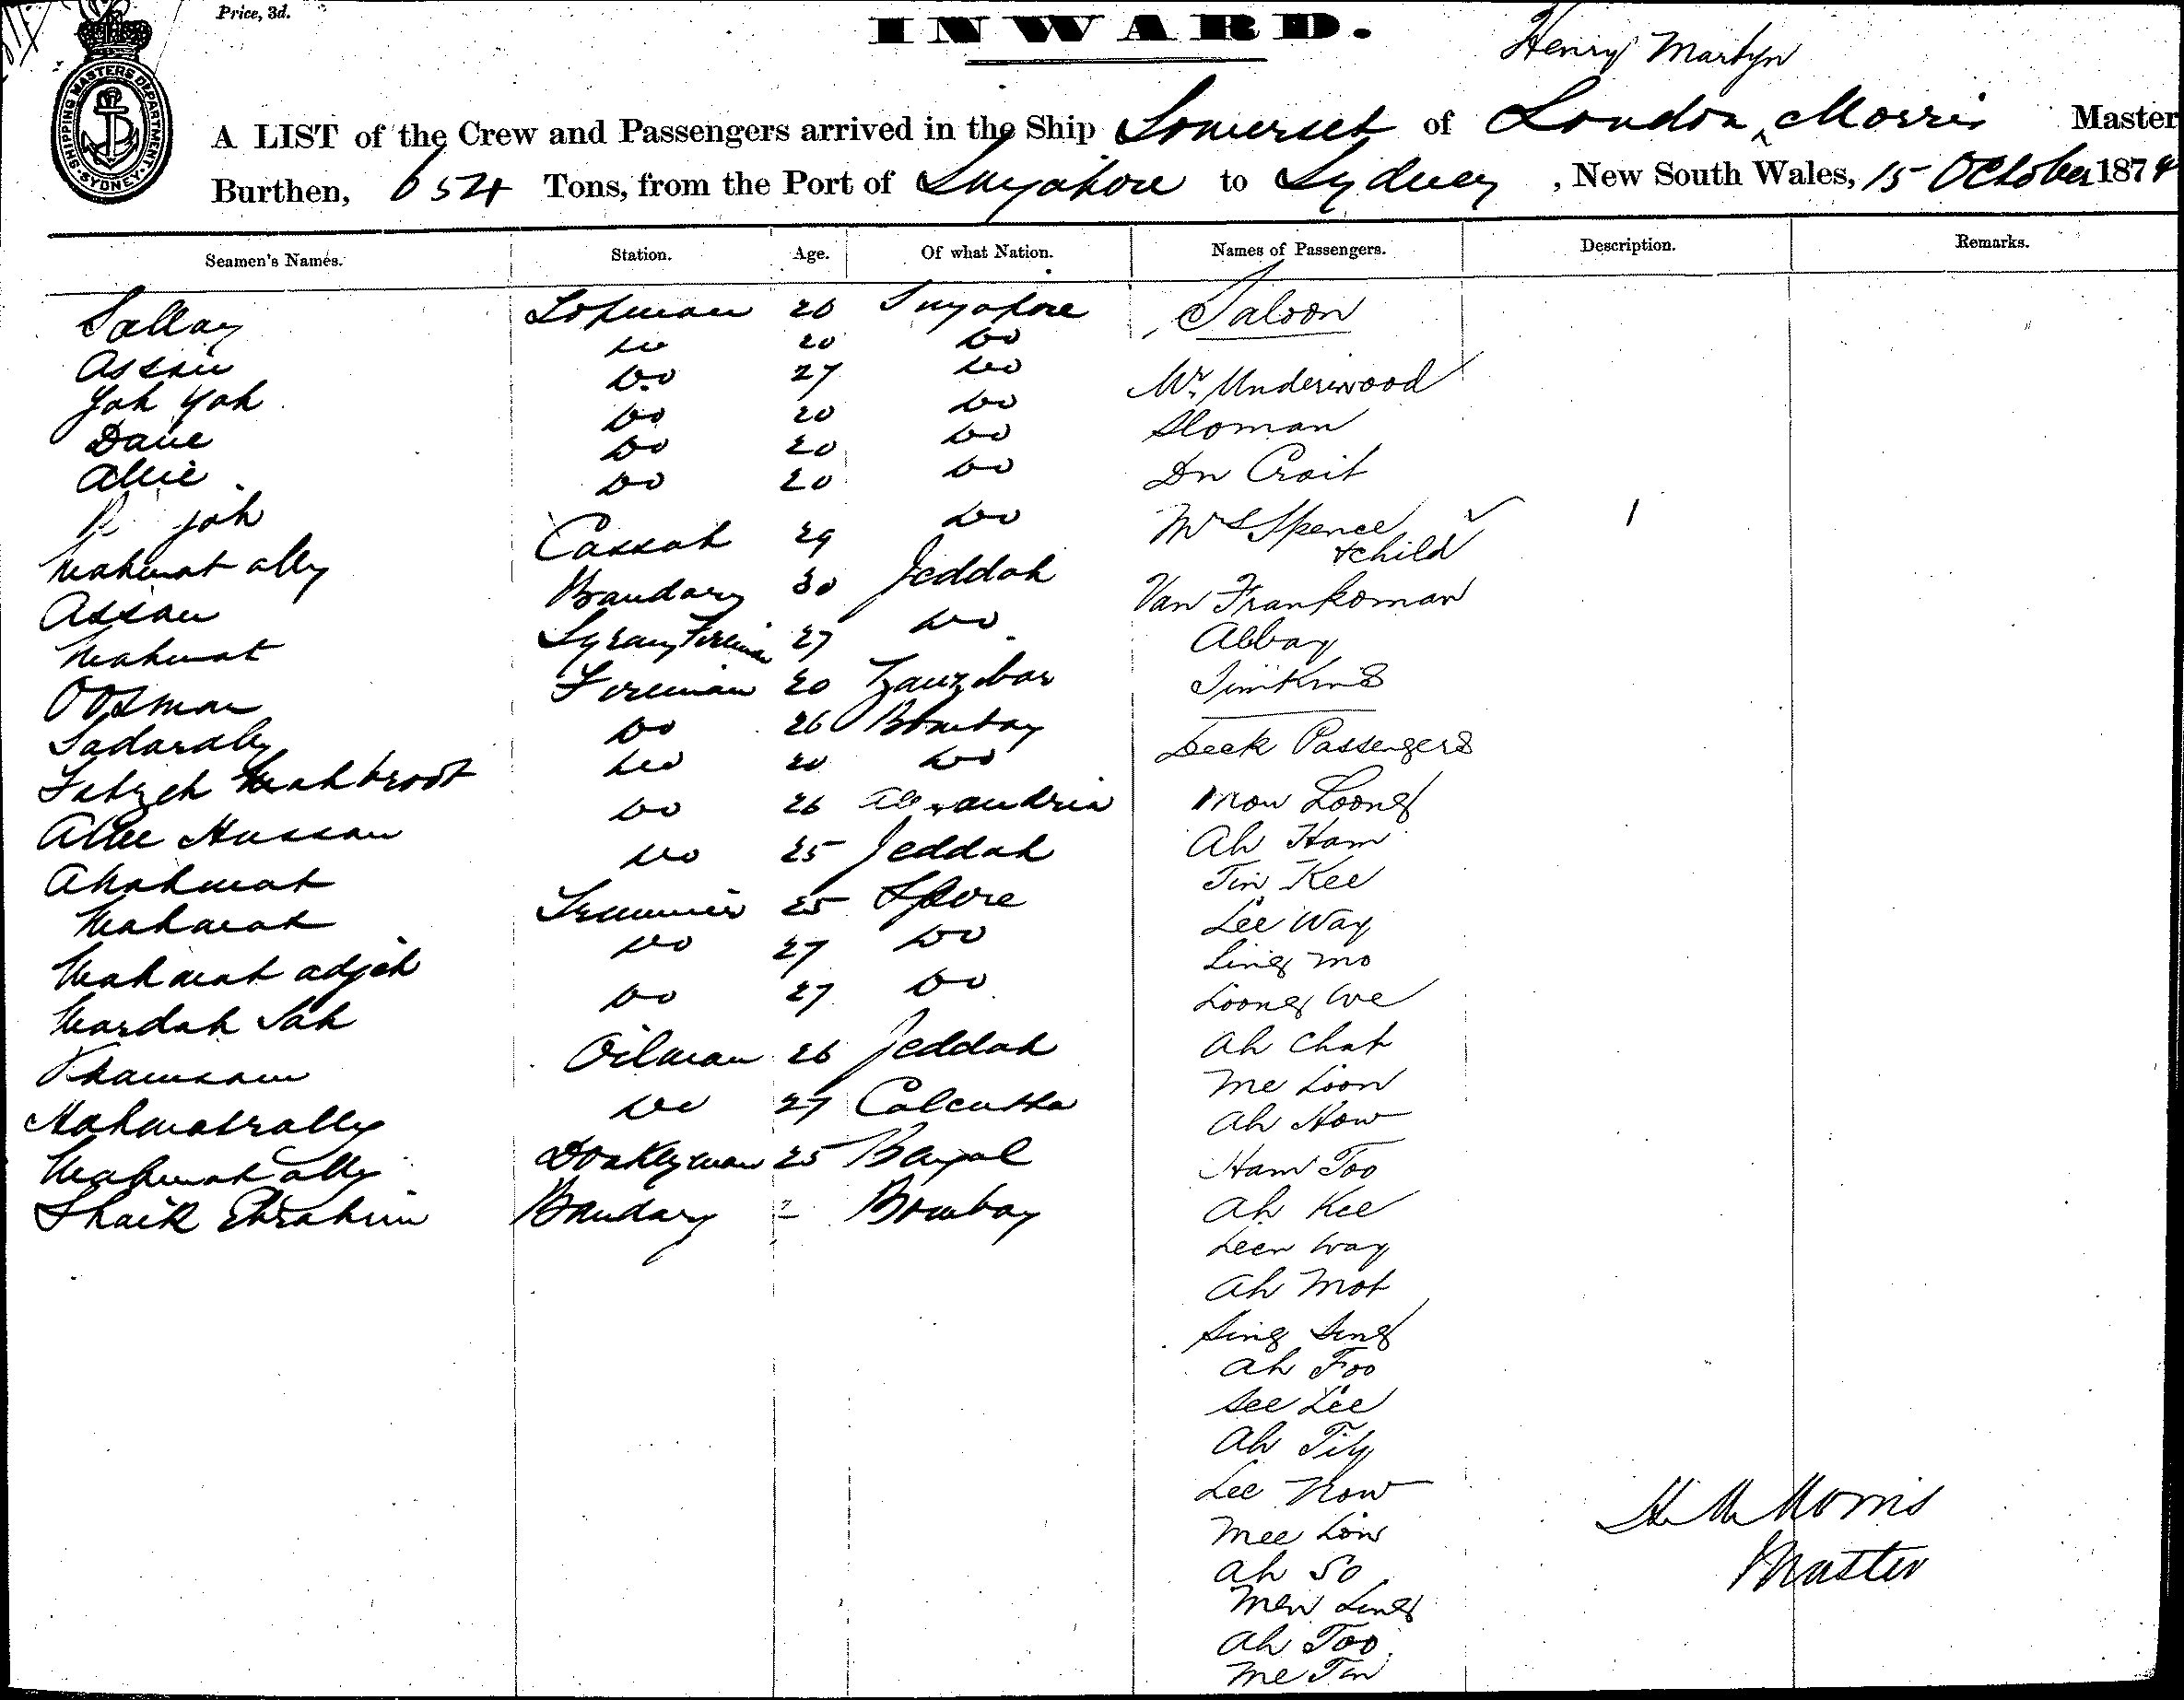 Price, 3d.
INWARD.
SHIPPING MASTERS DEPARTMENT SYDNEY
Henry Martyn
A LIST of the Crew and Passengers arrived in the Ship Somerset of London, Morris Master
Burthen, 654 Tons, from the Port of Singapore to Sydney, New South Wales, 15 October 1874
Seamen's Names. Station. Age. Of what Nation. Names of Passengers. Description. Remarks.
Sallay 26 Singapore Saloon
Assin Do 20 Do
Yah Yah Do 27 Do Mr. Underwood
Daue Do 20 Do Sloman
Allie Do 20 Do Dn Crait
jah Do 20 Do Mrs Spence
& child
Mahmat ally Cassab 29 Do Van Frankoman
Assan Bandary 30 Jeddah Abbay
Mahmat 27 Do Simkins
Oosman Fireman 20 Zanzibar
Sadarally Do 26 Bombay Deck Passengers
Do 20 Do
Allee Hussan Do 26 Alexandria Mow Loong
Ahahmat Do 25 Jeddah Ah Ham
Mahamat Trimmer 25 Spore Tin Kee
Mahamat adjeh Do 27 Do Lee Way
Mardah Sah Do 27 Do Ling Mo
Oilman 26 Jeddah Loong We
Mahmatrally Do 27 Calcutta Ah Chat
Mahmat ally Donkeyman 25 Bengal Me Loon
Shaik Ebrahim Bandary Bombay Ah How
Ham Too
Ah Kee
Leen Way
Ah Mot
Sing Sing
Ah Foo
See Lee
Ah Tily
Lee Now
Mee Lin
Ah So
Men Ling
Ah Too
Me Tin
H M Morris
Master